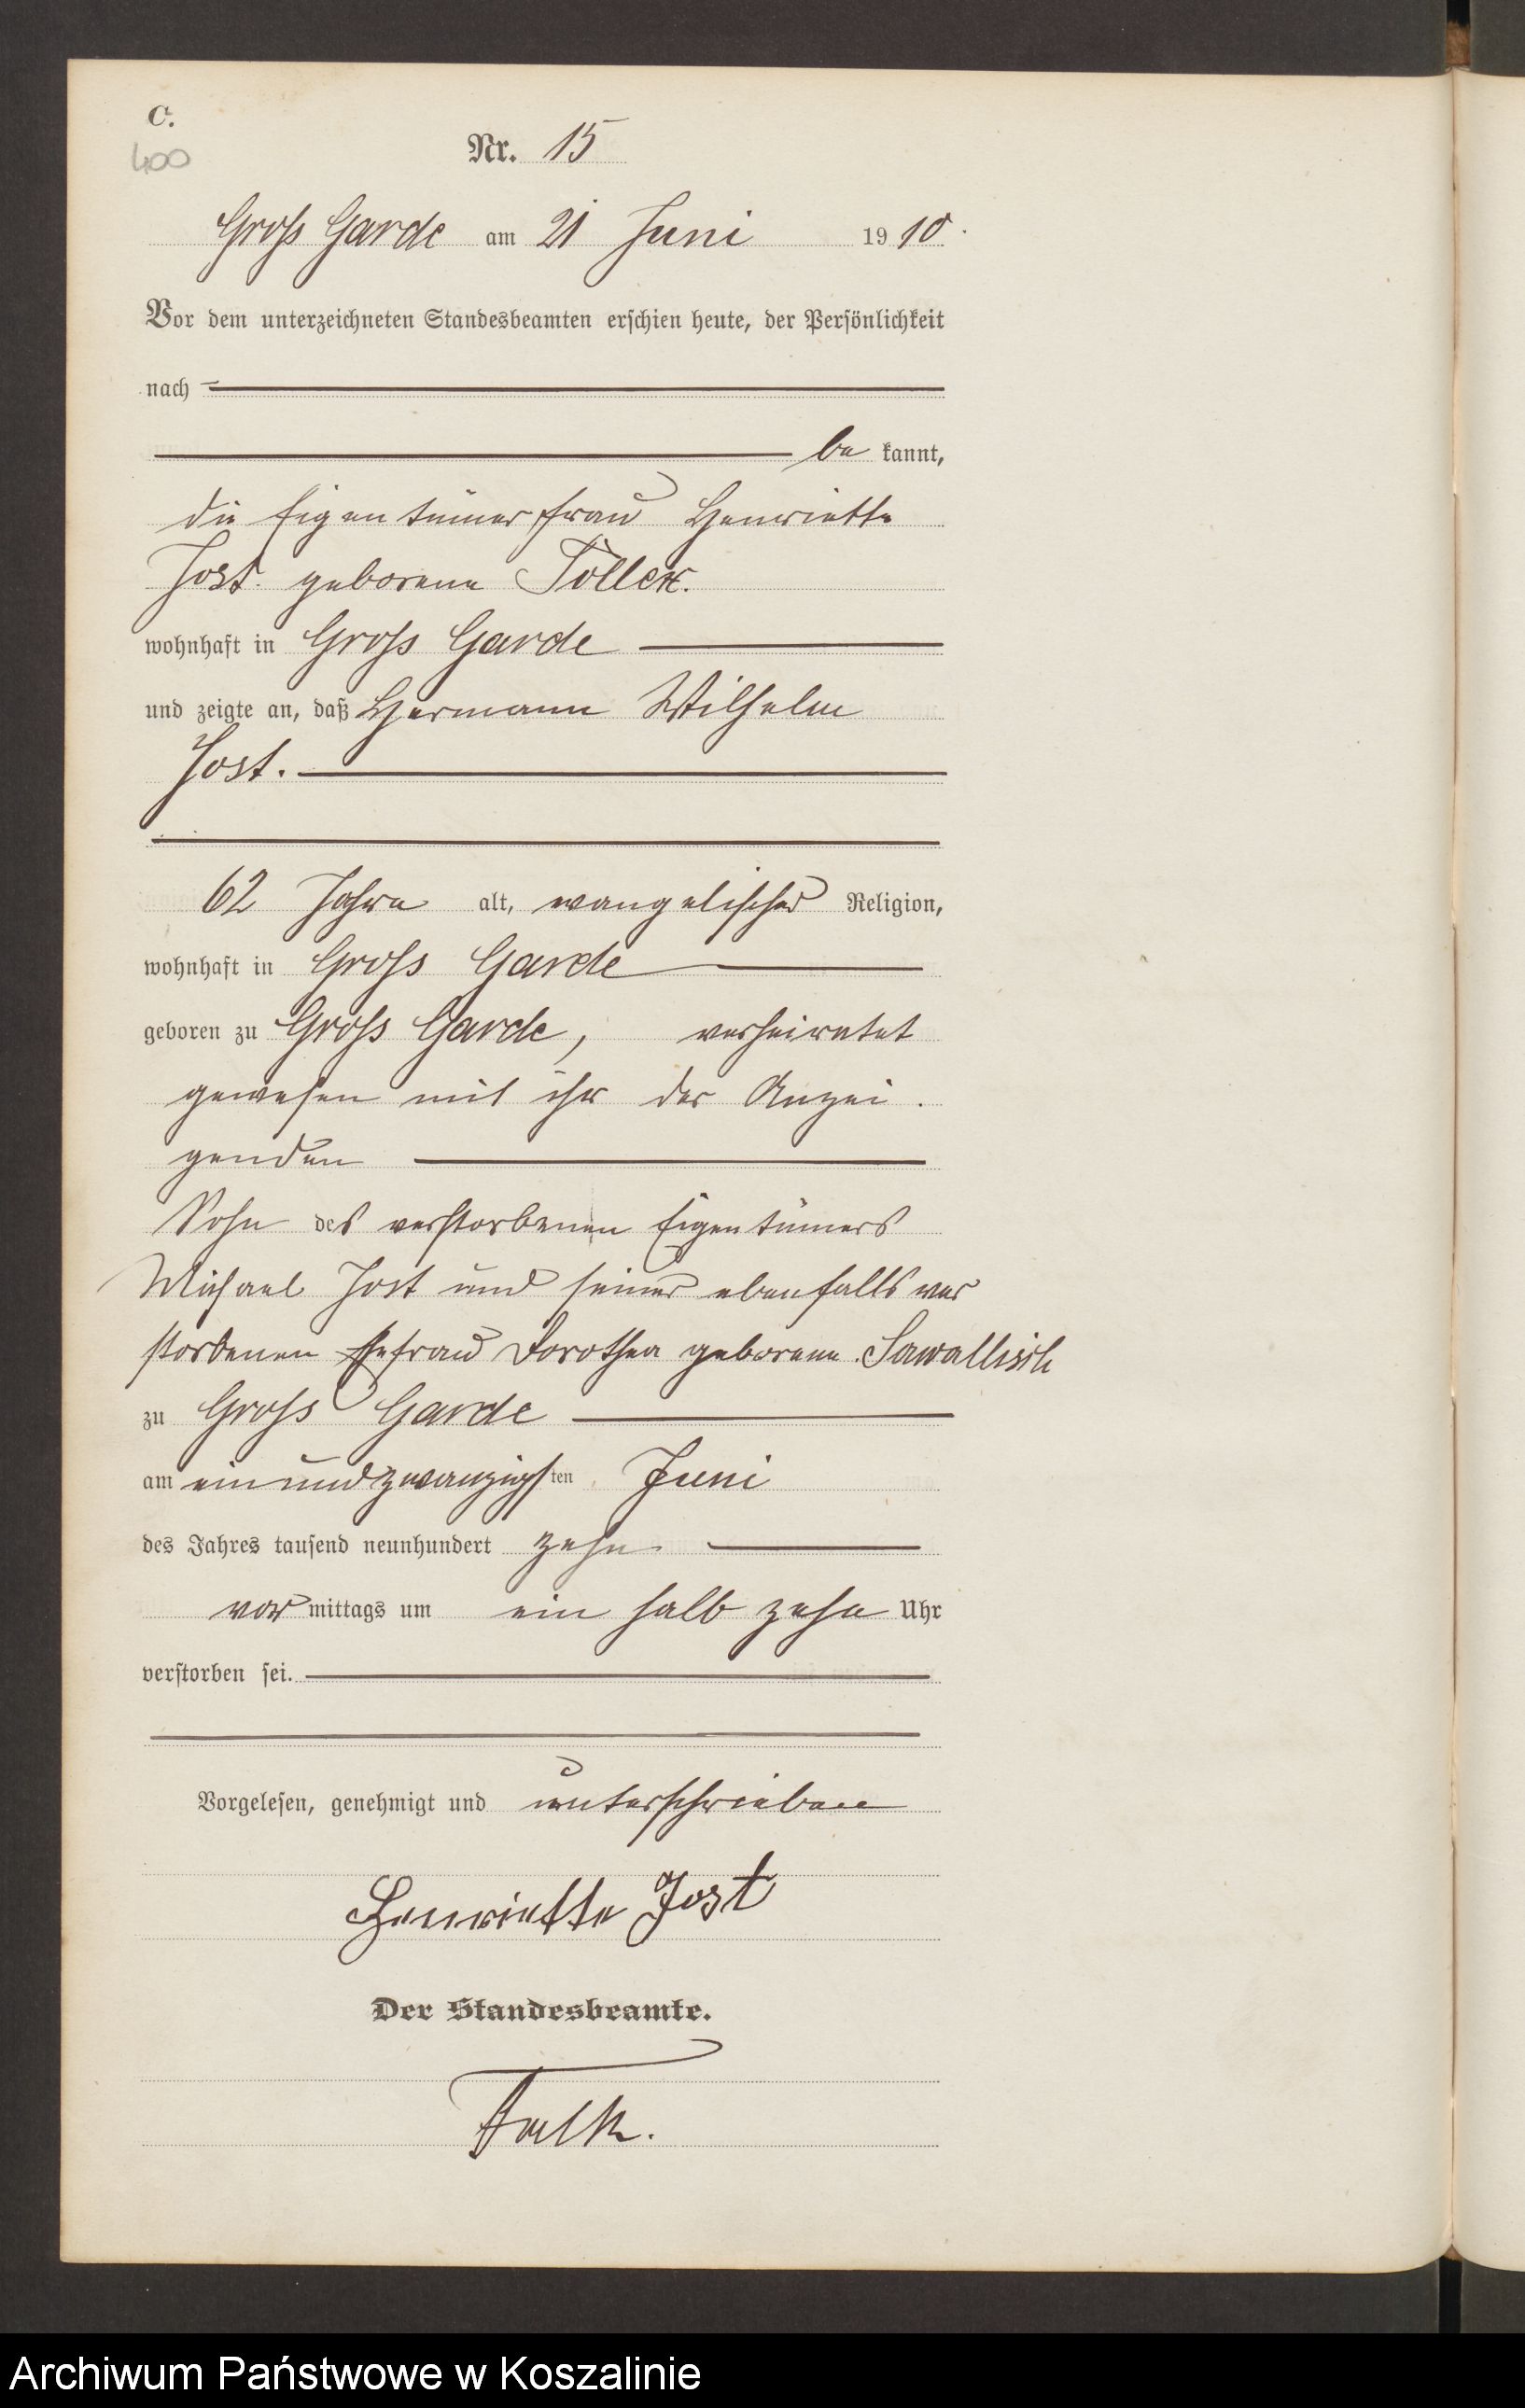 C.
400
Nr. 15
Gross Garde am 21 Juni 1910.
Vor dem unterzeichneten Standesbeamten erschien heute, der Persönlichkeit
nach
be kannt,
die Eigentümerfrau Henriette
Jost geborene
wohnhaft in Gross Garde
und zeigte an, daß Hermann Wilhelm
Jost.
62 Jahre alt, evangelischer Religion,
wohnhaft in Gross Garde
geboren zu Gross Garde, verheiratet
gewesen mit ihr der Anzei.
genden
Sohn des verstorbenen Eigentümers
Michael Jost und seiner ebenfalls ver
storbenen Ehefrau Dorothea geborene Sawallisch
zu Gross Garde
am einundzwanzigsten Juni
des Jahres tausend neunhundert zehn
vor mittags um ein halb zehn Uhr
verstorben sei.
Vorgelesen, genehmigt und unterschrieben
Henriette Jost
Der Standesbeamte.
Falk.
Archiwum Państwowe w Koszalinie